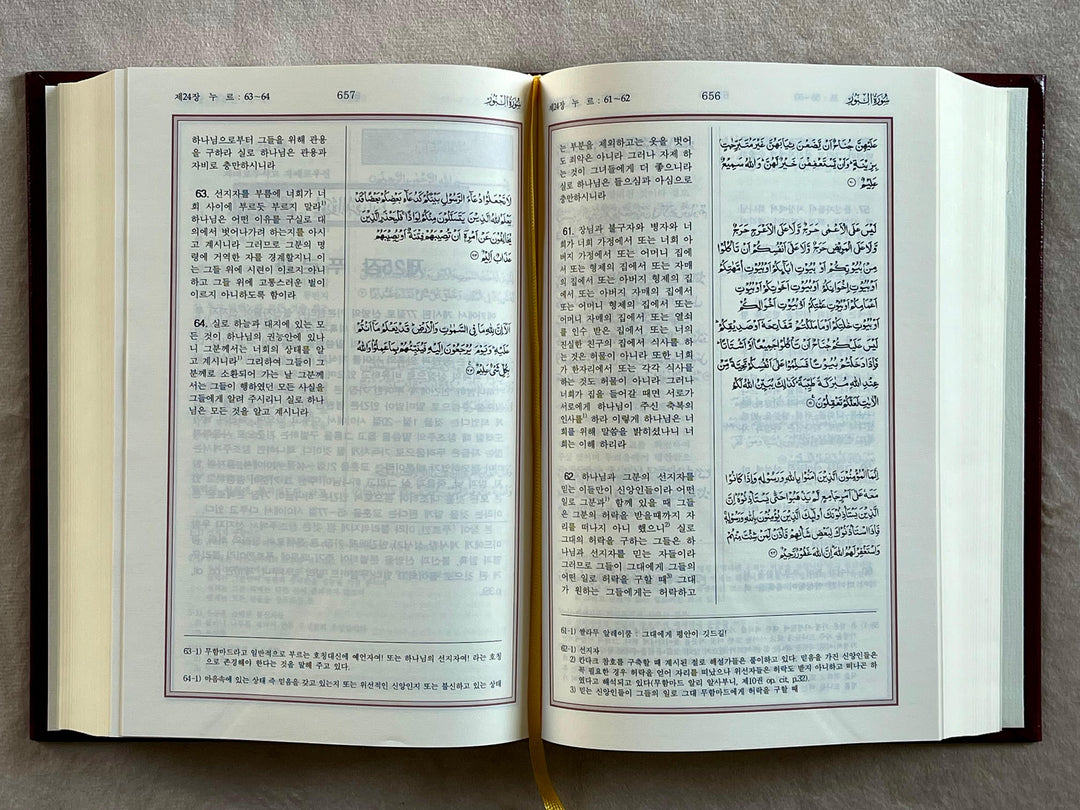 제24장 누 르 : 61~62
656
سُورَةُ النُّورِ
는 부분을 제외하고는 옷을 벗어
도 죄악은 아니라 그러나 자제 하
는 것이 그녀들에게 더 좋으니라
실로 하나님은 들으심과 아심으로
충만하시니라
61. 장님과 불구자와 병자와 너
희가 너희 가정에서 또는 너희 아
버지 가정에서 또는 어머니 집에
서 또는 형제의 집에서 또는 자매
의 집에서 또는 아버지 형제의 집
에서 또는 아버지 자매의 집에서
또는 어머니 형제의 집에서 또는
어머니 자매의 집에서 또는 열쇠
를 인수 받은 집에서 또는 너의
진실한 친구의 집에서 식사를 하
는 것은 허물이 아니라 또한 너희
가 한자리에서 또는 각각 식사를
하는 것도 허물이 아니라 그러나
너희가 집을 들어갈 때면 서로가
서로에게 하나님이 주신 축복의
인사를¹⁾ 하라 이렇게 하나님은 너
희를 위해 말씀을 밝히셨나니 너
희는 이해 하리라
62. 하나님과 그분의 선지자를
믿는 이들만이 신앙인들이라 어떤
일로 그분과¹⁾ 함께 있을 때 그들
은 그분의 허락을 받을때까지 자
리를 떠나지 아니 했으니²⁾ 실로
그대의 허락을 구하는 그들은 하
나님과 선지자를 믿는 자들이라
그러므로 그들이 그대에게 그들의
어떤 일로 허락을 구할 때³⁾ 그대
가 원하는 그들에게는 허락하고
عَلَيْهِنَّ جُنَاحٌ أَن يَضَعْنَ ثِيَابَهُنَّ غَيْرَ مُتَبَرِّجَٰتٍ
بِزِينَةٍ وَأَن يَسْتَعْفِفْنَ خَيْرٌ لَّهُنَّ وَاللَّهُ سَمِيعٌ
عَلِيمٌ ٦٠
لَّيْسَ عَلَى الْأَعْمَىٰ حَرَجٌ وَلَا عَلَى الْأَعْرَجِ حَرَجٌ
وَلَا عَلَى الْمَرِيضِ حَرَجٌ وَلَا عَلَىٰ أَنفُسِكُمْ أَن تَأْكُلُوا
مِن بُيُوتِكُمْ أَوْ بُيُوتِ ءَابَائِكُمْ أَوْ بُيُوتِ أُمَّهَٰتِكُمْ
أَوْ بُيُوتِ إِخْوَٰنِكُمْ أَوْ بُيُوتِ أَخَوَٰتِكُمْ أَوْ بُيُوتِ
أَعْمَٰمِكُمْ أَوْ بُيُوتِ عَمَّٰتِكُمْ أَوْ بُيُوتِ أَخْوَٰلِكُمْ
أَوْ بُيُوتِ خَٰلَٰتِكُمْ أَوْ مَا مَلَكْتُم مَّفَاتِحَهُ أَوْ صَدِيقِكُمْ
لَيْسَ عَلَيْكُمْ جُنَاحٌ أَن تَأْكُلُوا جَمِيعًا أَوْ أَشْتَاتًا
فَإِذَا دَخَلْتُم بُيُوتًا فَسَلِّمُوا عَلَىٰ أَنفُسِكُمْ تَحِيَّةً مِّنْ
عِندِ اللَّهِ مُبَٰرَكَةً طَيِّبَةً كَذَٰلِكَ يُبَيِّنُ اللَّهُ لَكُمُ
الْءَايَٰتِ لَعَلَّكُمْ تَعْقِلُونَ ٦١
إِنَّمَا الْمُؤْمِنُونَ الَّذِينَ ءَامَنُوا بِاللَّهِ وَرَسُولِهِ وَإِذَا كَانُوا
مَعَهُ عَلَىٰ أَمْرٍ جَامِعٍ لَّمْ يَذْهَبُوا حَتَّىٰ يَسْتَـْٔذِنُوهُ إِنَّ
الَّذِينَ يَسْتَـْٔذِنُونَكَ أُولَٰئِكَ الَّذِينَ يُؤْمِنُونَ بِاللَّهِ وَرَسُولِهِ
فَإِذَا اسْتَـْٔذَنُوكَ لِبَعْضِ شَأْنِهِمْ فَأْذَن لِّمَن شِئْتَ مِنْهُمْ
وَاسْتَغْفِرْ لَهُمُ اللَّهَ إِنَّ اللَّهَ غَفُورٌ رَّحِيمٌ ٦٢
61-1) 쌀라무 알레이쿰 : 그대에게 평안이 깃드길!
62-1) 선지자
2) 칸다크 참호를 구축할 때 계시된 절로 해설가들은 풀이하고 있다. 믿음을 가진 신앙인들은
꼭 필요한 경우 허락을 얻어 자리를 떠났으나 위선자들은 허락도 받지 아니하고 떠나곤 하
였다고 해석되고 있다(무함마드 알리 알사부니, 제10권 op. cit, p.32).
3) 믿는 신앙인들이 그들의 일로 그대 무함마드에게 허락을 구할 때
제24장 누 르 : 63~64
657
سُورَةُ النُّورِ
하나님으로부터 그들을 위해 관용
을 구하라 실로 하나님은 관용과
자비로 충만하시니라
63. 선지자를 부름에 너희가 너
희 사이에 부르듯 부르지 말라¹⁾
하나님은 어떤 이유를 구실로 대
의에서 벗어나가려 하는지를 아시
고 계시니라 그러므로 그분의 명
령에 거역한 자를 경계할지니 이
는 그들 위에 시련이 이르지 아니
하고 그들 위에 고통스러운 벌이
이르지 아니하도록 함이라
64. 실로 하늘과 대지에 있는 모
든 것이 하나님의 권능안에 있나
니 그분께서는 너희의 상태를 알
고 계시니라¹⁾ 그리하여 그들이 그
분께로 소환되어 가는 날 그분께
서는 그들이 행하였던 모든 사실을
그들에게 알려 주시리니 실로 하나
님은 모든 것을 알고 계시니라
لَّا تَجْعَلُوا دُعَاءَ الرَّسُولِ بَيْنَكُمْ كَدُعَاءِ بَعْضِكُم بَعْضًا قَدْ
يَعْلَمُ اللَّهُ الَّذِينَ يَتَسَلَّلُونَ مِنكُمْ لِوَاذًا فَلْيَحْذَرِ الَّذِينَ
يُخَالِفُونَ عَنْ أَمْرِهِ أَن تُصِيبَهُمْ فِتْنَةٌ أَوْ يُصِيبَهُمْ
عَذَابٌ أَلِيمٌ ٦٣
أَلَا إِنَّ لِلَّهِ مَا فِي السَّمَٰوَٰتِ وَالْأَرْضِ قَدْ يَعْلَمُ مَا أَنتُمْ
عَلَيْهِ وَيَوْمَ يُرْجَعُونَ إِلَيْهِ فَيُنَبِّئُهُم بِمَا عَمِلُوا وَاللَّهُ
بِكُلِّ شَيْءٍ عَلِيمٌ ٦٤
63-1) 무함마드라고 일반적으로 부르는 호칭대신에 예언자여! 또는 하나님의 선지자여! 라는 호칭
으로 존경해야 한다는 것을 말해 주고 있다.
64-1) 마음속에 있는 상태 즉 믿음을 갖고 있는지 또는 위선적인 신앙인지 또는 불신하고 있는 상태